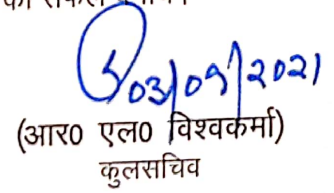 03/09/2021
(आर० एल० विश्वकर्मा)
कुलसचिव